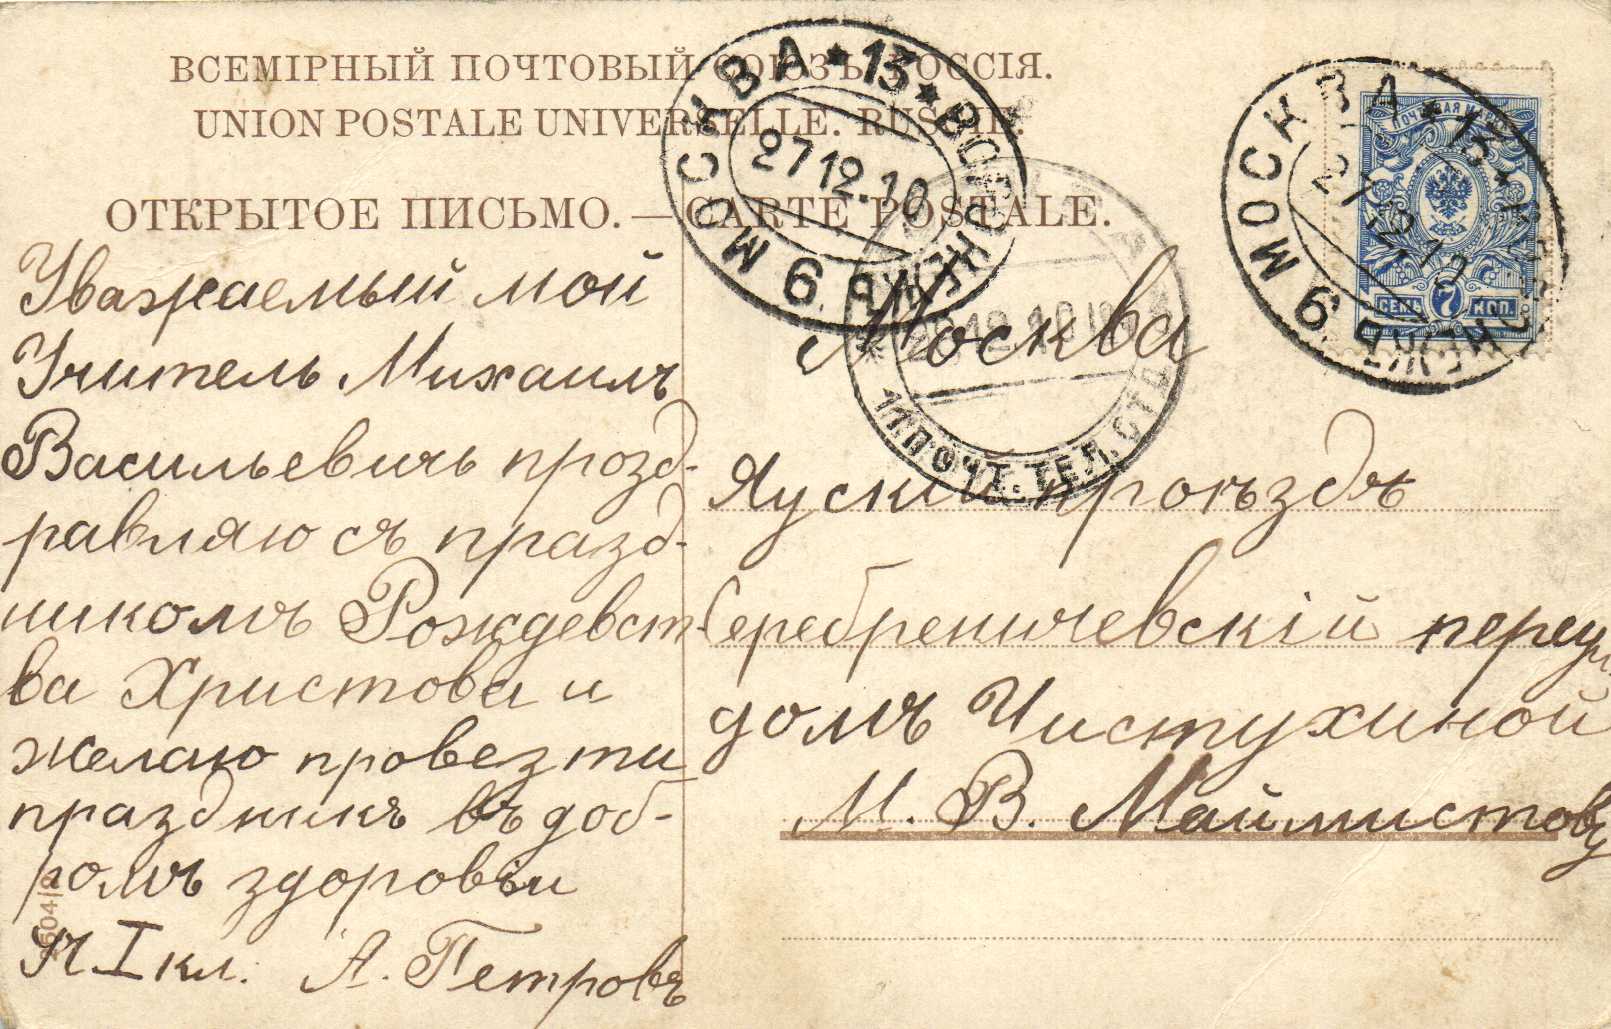 ВСЕМІРНЫЙ ПОЧТОВЫЙ СОЮЗЪ. РОССІЯ.
UNION POSTALE UNIVERSELLE. RUSSIE.
ОТКРЫТОЕ ПИСЬМО. — CARTE POSTALE.
МОСКВА * 13 * ВОРОНЕЖЪ 9
27 12.10
МОСКВА * 13 * ВОРОНЕЖЪ 9
27 12.10
ПОЧТОВАЯ МАРКА
СЕМЬ 7 КОП.
12.10
17. ПОЧТ. ТЕЛ. ОТД.
Уважаемый мой
Учитель Михаилъ
Васильевичъ прозд-
равляю съ празд-
никомъ Рождевст-
ва Христова и
желаю провезти
праздникъ въ доб-
ромъ здоровьи
I кл. А. Петровъ
Москва
Яуский проѣздъ
Серебреничевскій переул.
домъ Чистухиной
М. В. Маймистову